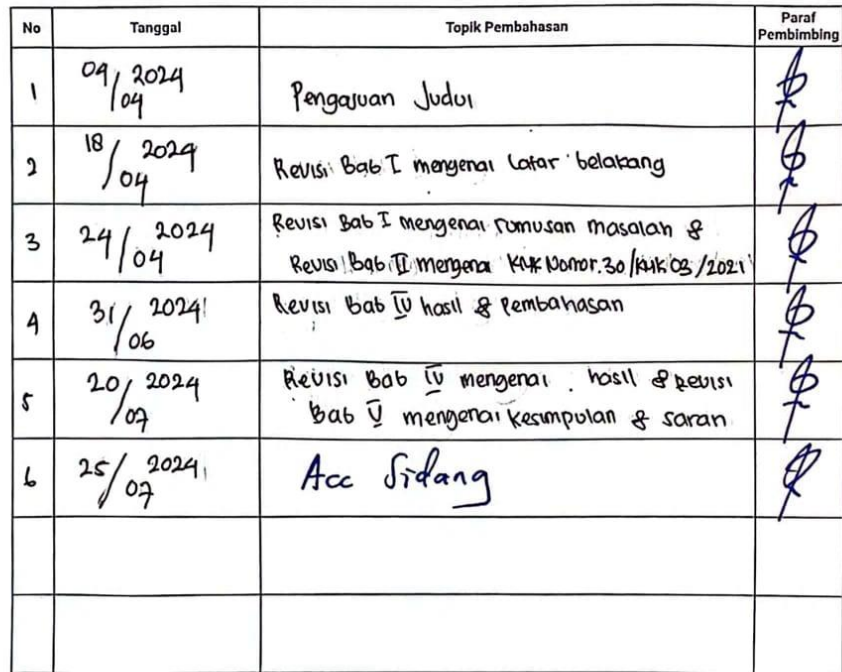 No Tanggal Topik Pembahasan Paraf Pembimbing
1 04/04 2024 Pengajuan Judul
2 18/04 2024 Revisi Bab I mengenai Latar belakang
3 24/04 2024 Revisi Bab I mengenai rumusan masalah &
Revisi Bab II mengenai KMK Nomor.30/KMK 03/2021
4 31/06 2024 Revisi Bab IV hasil & Pembahasan
5 20/07 2024 Revisi Bab IV mengenai hasil & Revisi
Bab V mengenai Kesimpulan & saran
6 25/07 2024 Acc Sidang